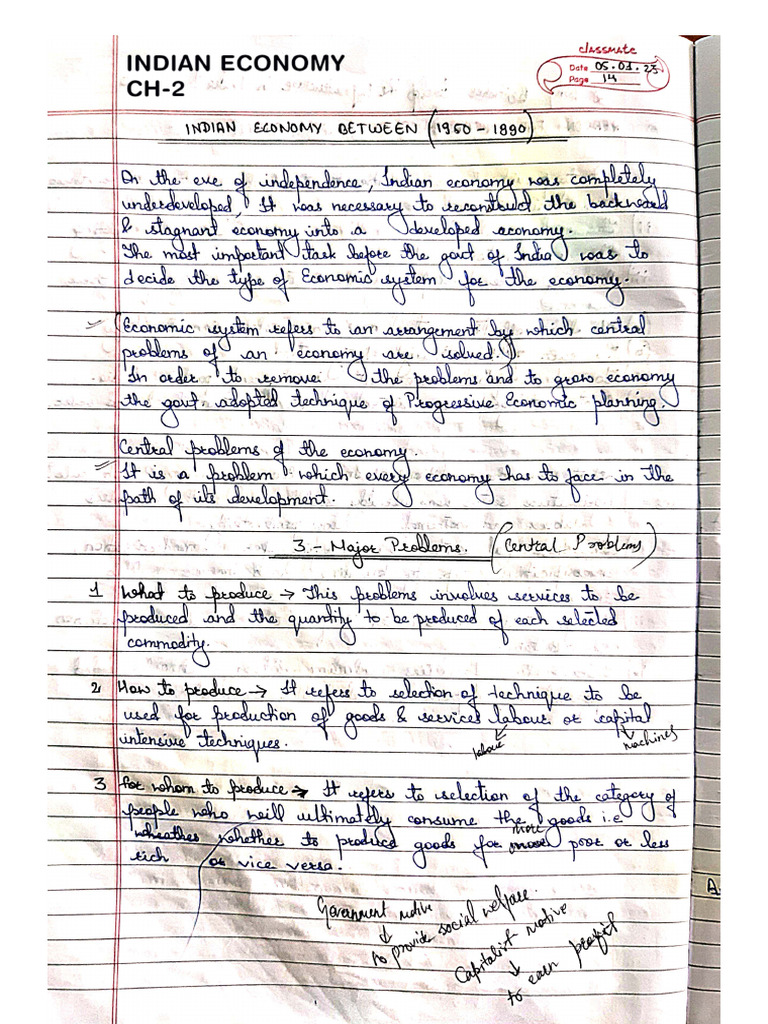 classmate
INDIAN ECONOMY
Date 05.01.23
CH-2
Page 14
INDIAN ECONOMY BETWEEN (1950 - 1990)
On the eve of independence, Indian economy was completely
underdeveloped, It was necessary to reconstruct the backward
& stagnant economy into a developed economy.
The most important task before the govt of India was to
decide the type of Economic system for the economy.
(Economic system refers to an arrangement by which central
problems of an economy are solved.)
In order to remove the problems and to grow economy
the govt. adopted technique of Progressive Economic planning.
Central problems of the economy.
It is a problem which every economy has to face in the
path of its development.
3 - Major Problems. (Central Problems)
1 What to produce → This problems involves services to be
produced and the quantity to be produced of each selected
commodity.
2 How to produce → It refers to selection of technique to be
used for production of goods & services labour or capital
intensive techniques.
labour
machines
3 for whom to produce → It refers to selection of the category of
people who will ultimately consume the goods i.e
whether to produce goods for more poor or less
rich or vice versa.
Government motive
↓
to provide social welfare.
Capitalist motive
↓
to earn profit
A